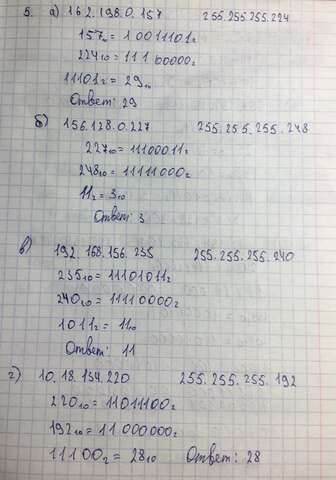 5. а) 162.198.0.157 255.255.255.224
157₂ = 10011101₂
224₁₀ = 11100000₂
11101₂ = 29₁₀
Ответ: 29
б) 156.128.0.227 255.255.255.248
227₁₀ = 11100011₂
248₁₀ = 11111000₂
11₂ = 3₁₀
Ответ: 3
в) 192.168.156.235 255.255.255.240
235₁₀ = 11101011₂
240₁₀ = 11110000₂
1011₂ = 11₁₀
Ответ: 11
г) 10.18.134.220 255.255.255.192
220₁₀ = 11011100₂
192₁₀ = 11000000₂
11100₂ = 28₁₀ Ответ: 28